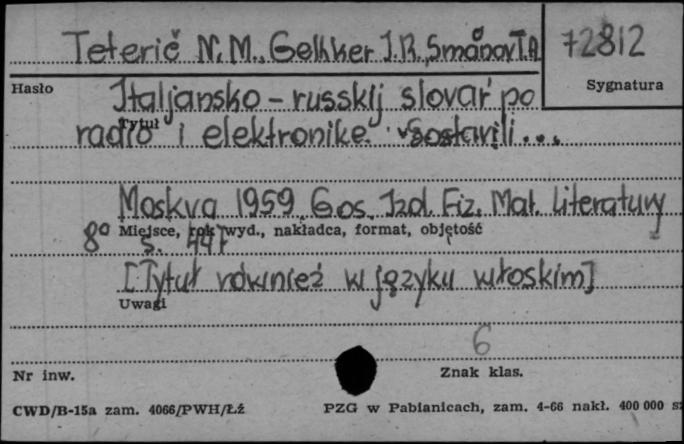 Teterič N.M., Gelkker I.R., Smánov T.A
72812
Sygnatura
Hasło
Italjansko - russkij slovar' po
Tytuł
radio i elektronike. Sostavili...
Moskva 1959. Gos. Izd. Fiz. Mat. Literatury
Miejsce, rok wyd., nakładca, format, objętość
8° s. 447
[Tytuł również w języku włoskim]
Uwagi
6
Nr inw.
Znak klas.
CWD/B-15a zam. 4066/PWH/Łź
PZG w Pabianicach, zam. 4-66 nakł. 400 000